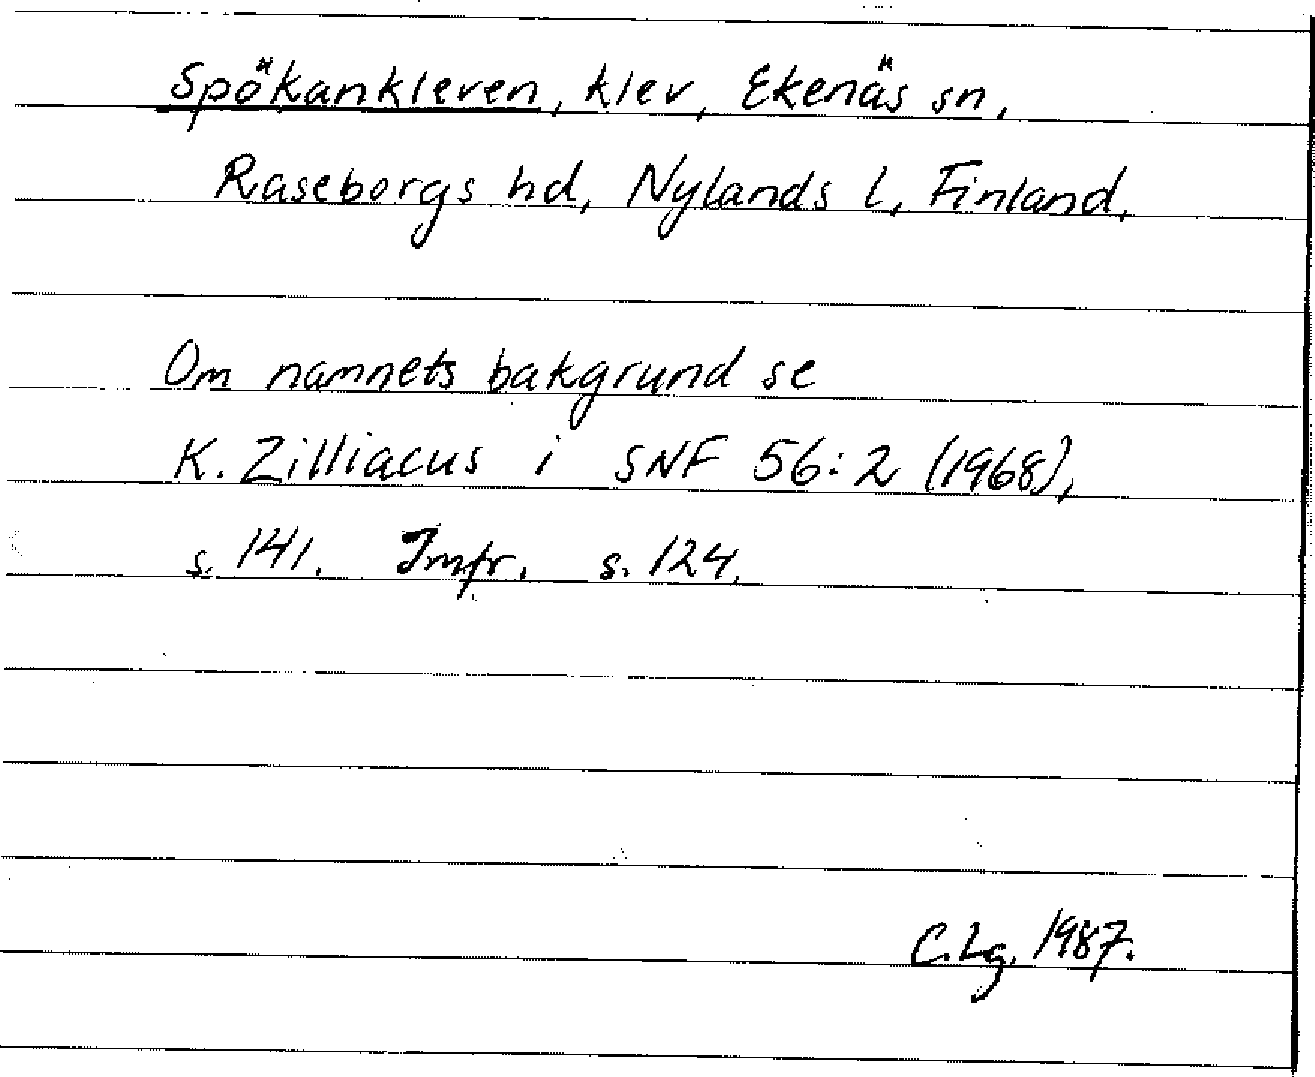 Spökankleven, klev, Ekenäs sn,
Raseborgs hd, Nylands l, Finland.
Om namnets bakgrund se
K. Zilliacus i SNF 56:2 (1968),
s. 141. Jmfr. s. 124.
C.Lg. 1987.